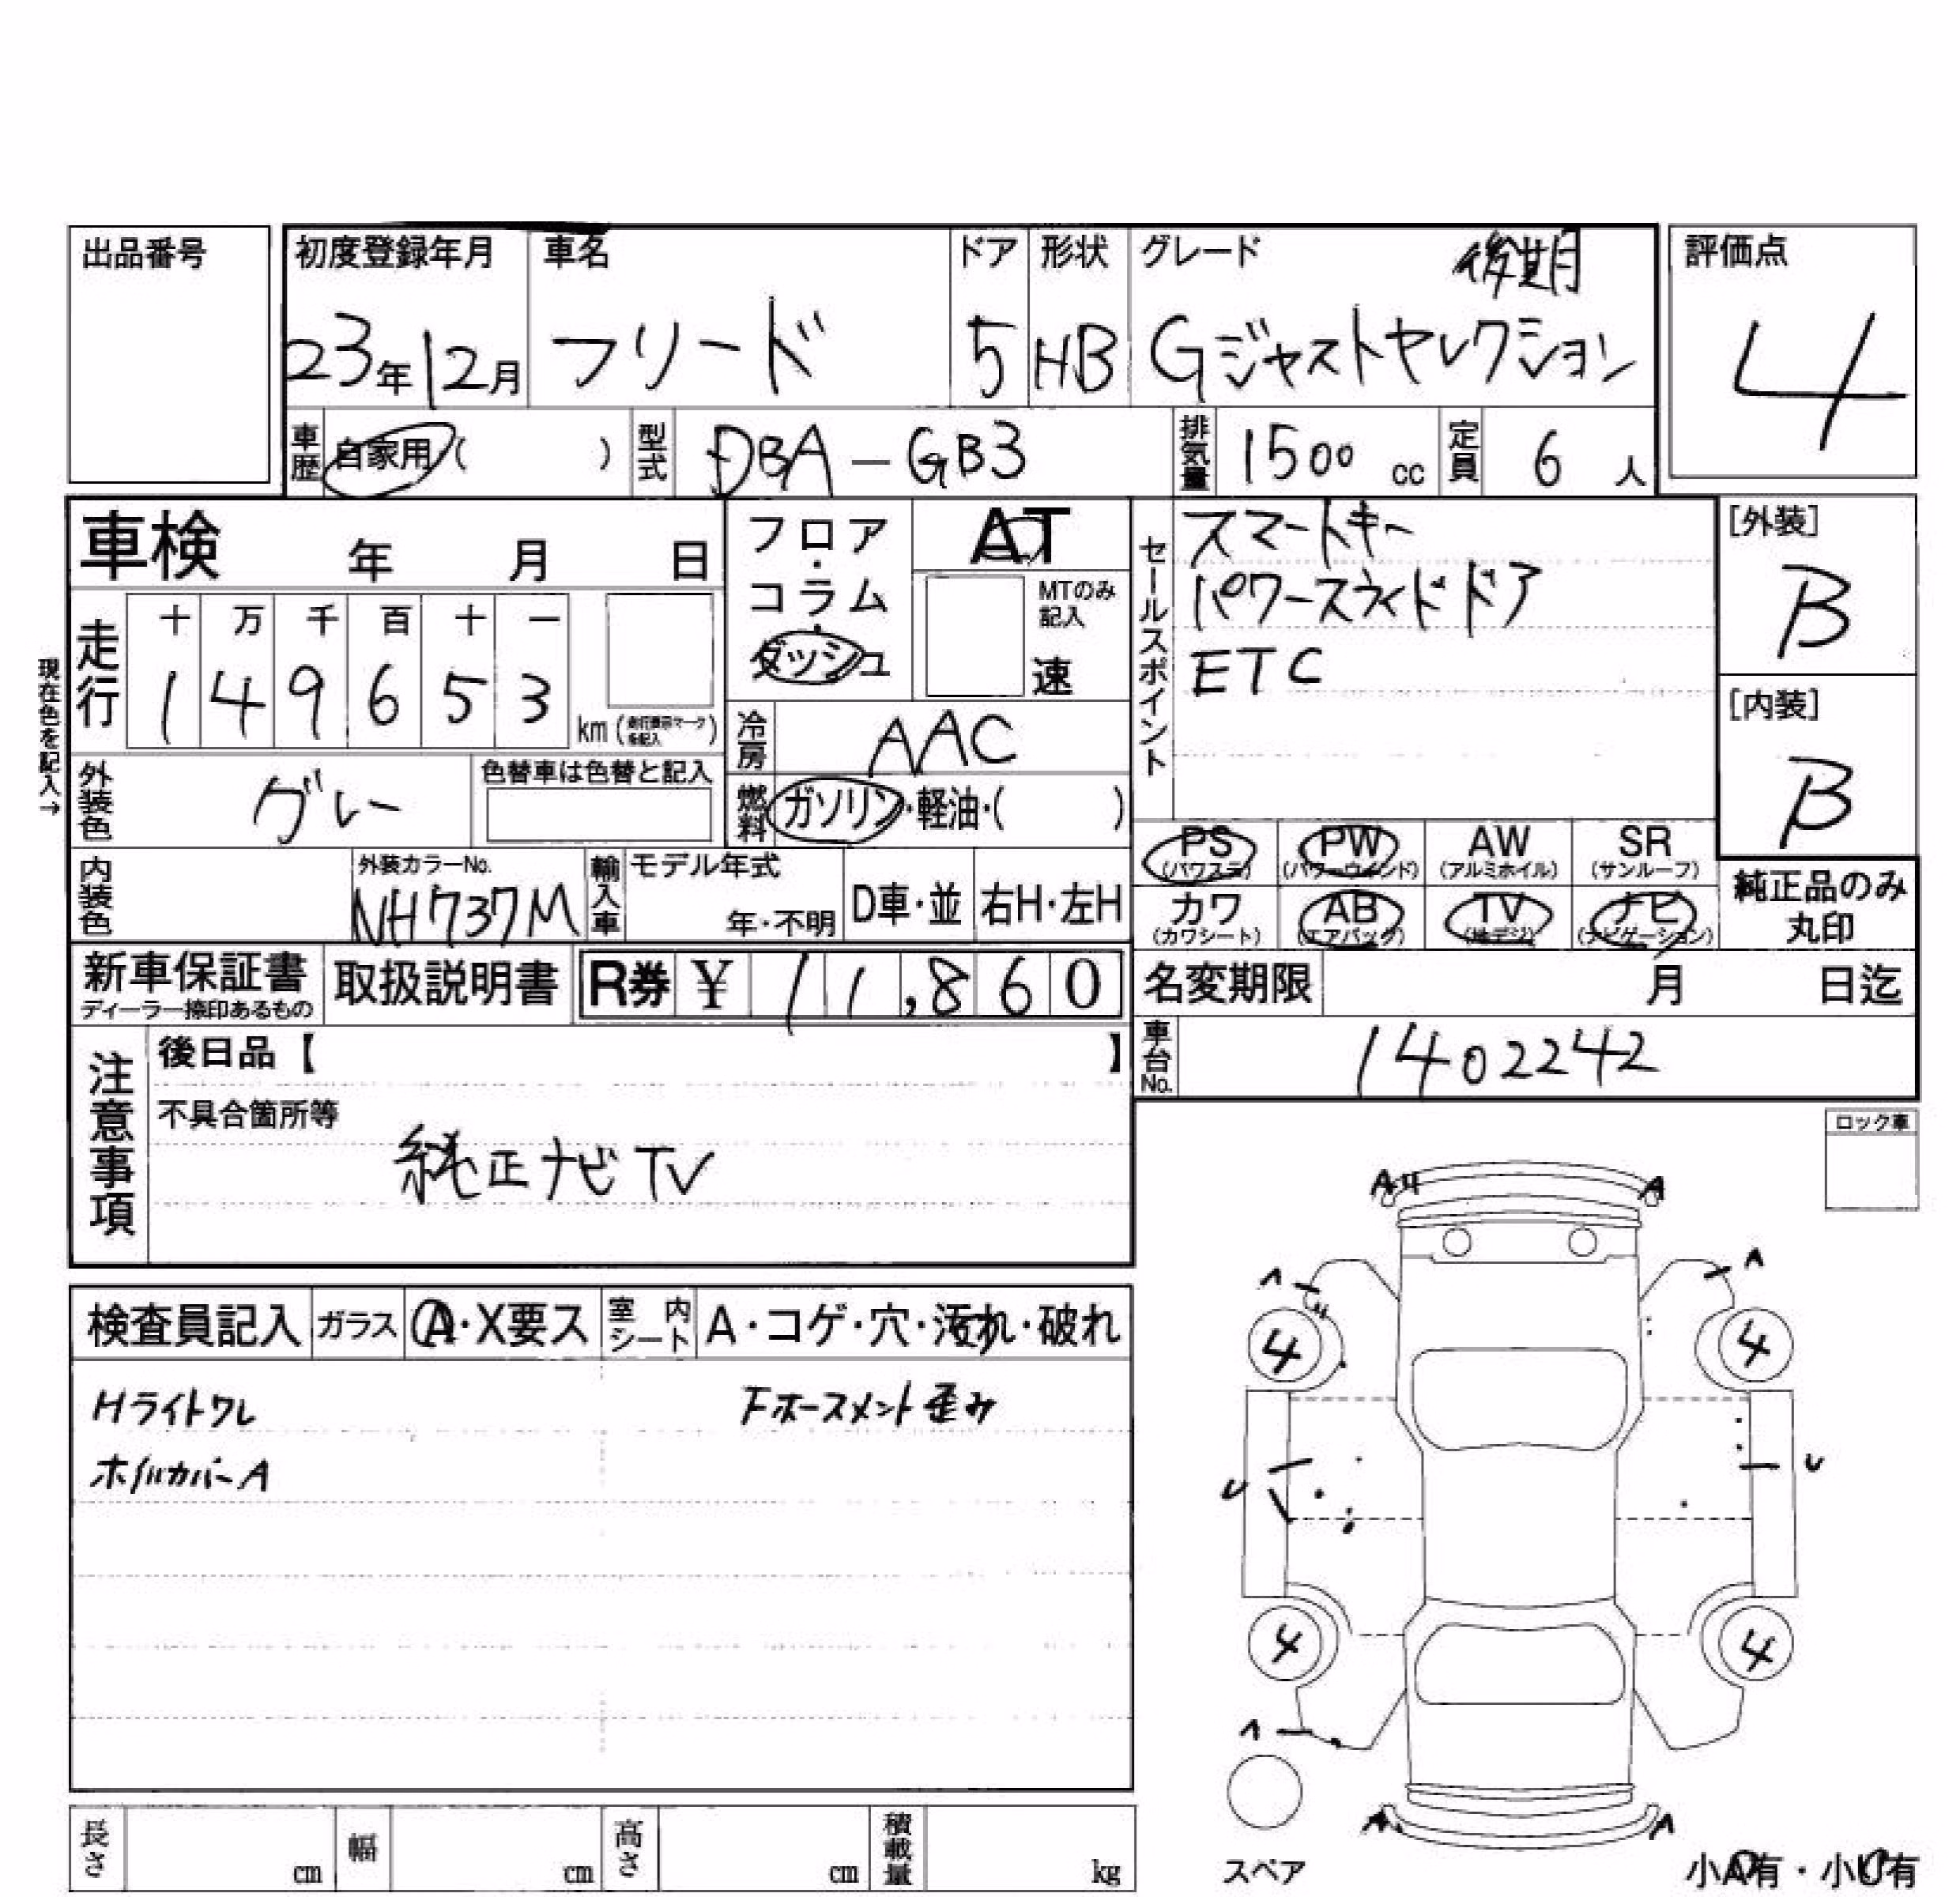 出品番号
初度登録年月 車名 ドア 形状 グレード 後期 評価点
23年12月 フリード 5 HB Gジャストセレクション 4
車歴 自家用( ) 型式 DBA-GB3 排気量 1500 cc 定員 6 人
車検 年 月 日
フロア・コラム・ダッシュ
AT
MTのみ記入
速
セールスポイント
スマートキー
パワースライドドア
ETC
[外装]
B
[内装]
B
現在色を記入→
走行 十 万 千 百 十 一
1 4 9 6 5 3 km
冷房 AAC
外装色 グレー 色替車は色替と記入
燃料 ガソリン・軽油・( )
PS (パワステ) PW (パワーウインド) AW (アルミホイル) SR (サンルーフ)
カワ (カワシート) AB (エアバック) TV (地デジ) ナビ (ナビゲーション)
純正品のみ
丸印
内装色 外装カラーNo. NH737M 輸入車 モデル年式 年・不明 D車・並 右H・左H
新車保証書 ディーラー捺印あるもの 取扱説明書 R券 ¥ 11,860
名変期限 月 日迄
車台No. 1402242
注意事項
後日品【 】
不具合箇所等
純正ナビTV
ロック車
A U A
A A
4 4
U U
4 4
A
A A
検査員記入 ガラス A・X要ス 室内シート A・コゲ・穴・汚れ・破れ
Hライトワレ Fホースメント歪み
ホイルカバーA
長さ cm 幅 cm 高さ cm 積載量 kg
スペア
小A有・小U有